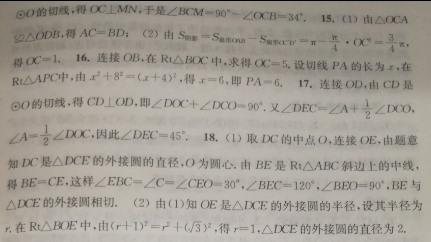 ⊙O的切线,得 OC⊥MN,于是∠BCM=90°-∠OCB=34°. 15. (1) 由△OCA
≌△ODB,得 AC=BD; (2) 由 S阴影=S扇形OAB-S扇形OCD=π-π/4·OC²=3/4π,
得 OC=1. 16. 连接 OB,在 Rt△BOC 中,求得 OC=5. 设切线 PA 的长为 x,在
Rt△APC中,由 x²+8²=(x+4)²,得 x=6,即 PA=6. 17. 连接 OD,由 CD 是
⊙O的切线,得 CD⊥OD,即∠DOC+∠DCO=90°. 又∠DEC=∠A+1/2∠DCO,
∠A=1/2∠DOC,因此∠DEC=45°. 18. (1) 取 DC 的中点 O,连接 OE,由题意
知 DC 是△DCE 的外接圆的直径,O 为圆心. 由 BE 是 Rt△ABC 斜边上的中线,
得 BE=CE,这样∠EBC=∠C=∠CEO=30°,∠BEC=120°,∠BEO=90°,BE 与
△DCE 的外接圆相切. (2) 由(1)知 OE 是△DCE 的外接圆的半径,设其半径为
r, 在 Rt△BOE 中,由(r+1)²=r²+(√3)²,得 r=1,△DCE 的外接圆的直径为 2.